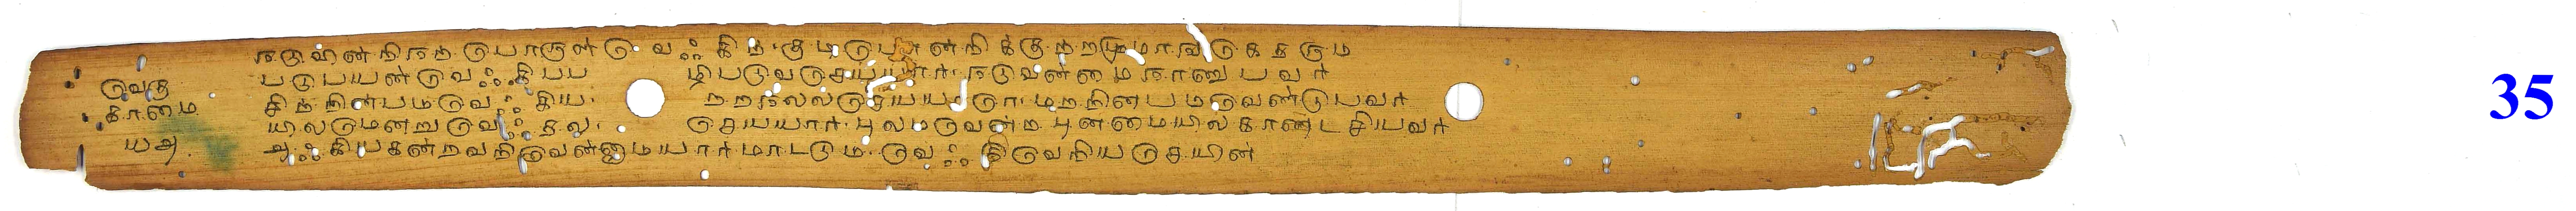 வெஃ
காமை
யஅ
நடுவின்றிநற்பொருள்வெஃகிற்குடிபொன்றிக்குற்றமுமாஙகெதரும
படுபயன்வெஃகிபப ழிபடுவசெயயார்நடுவன்மைநாணுபவர்
சிற்றின்பமவெஃகிய றறநலலசெயயாரெமறறினபமவெண்டுபவர்
யிலமெனறுவெஃகுதல செயயார்புலமவென்றபுன்மையிலகாண்டசியவர்
அஃகியகன்றவறிவென்னாமயார்மாடடுமவெஃகிவெறியசெயின்
35